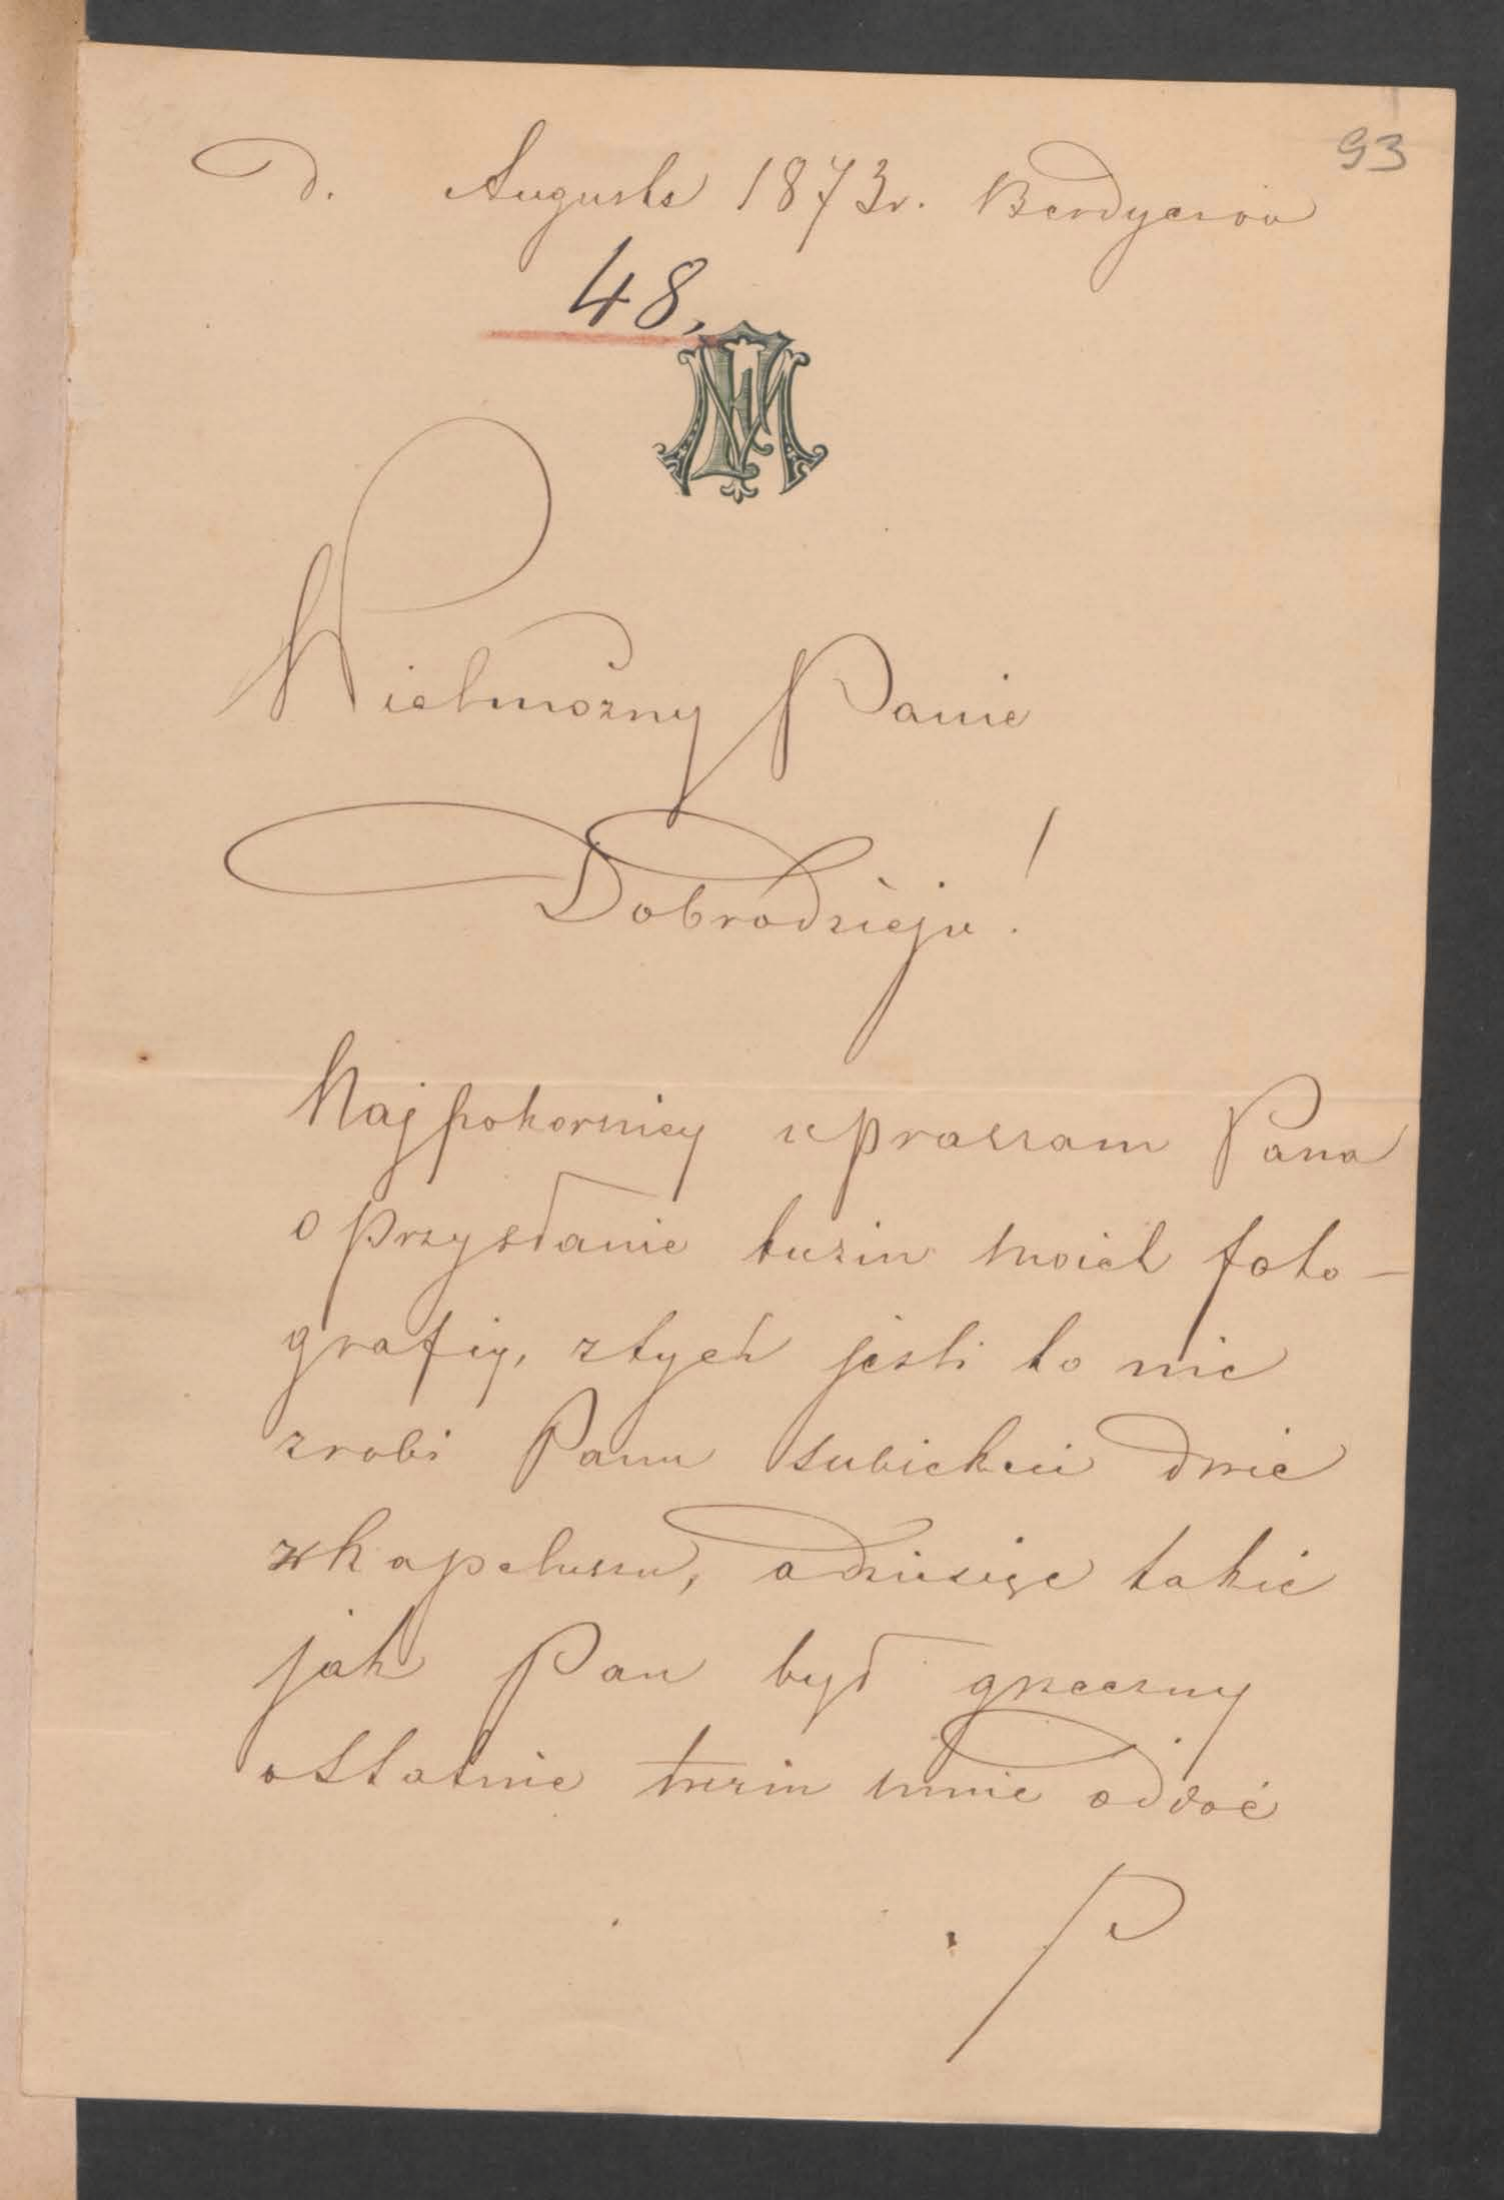 93
D. Augusta 1873r. Berdyczów
48,
Wielmożny Panie
Dobrodzieju!
Najpokorniey upraszam Pana
o przysłanie tuzin moich foto-
grafiy, ztych jesli to nie
zrobi Panu dwie
w kapeluszu, a dziesięc takie
jak Pan był grzeczny
ostatnie tuzin mnie oddać
P